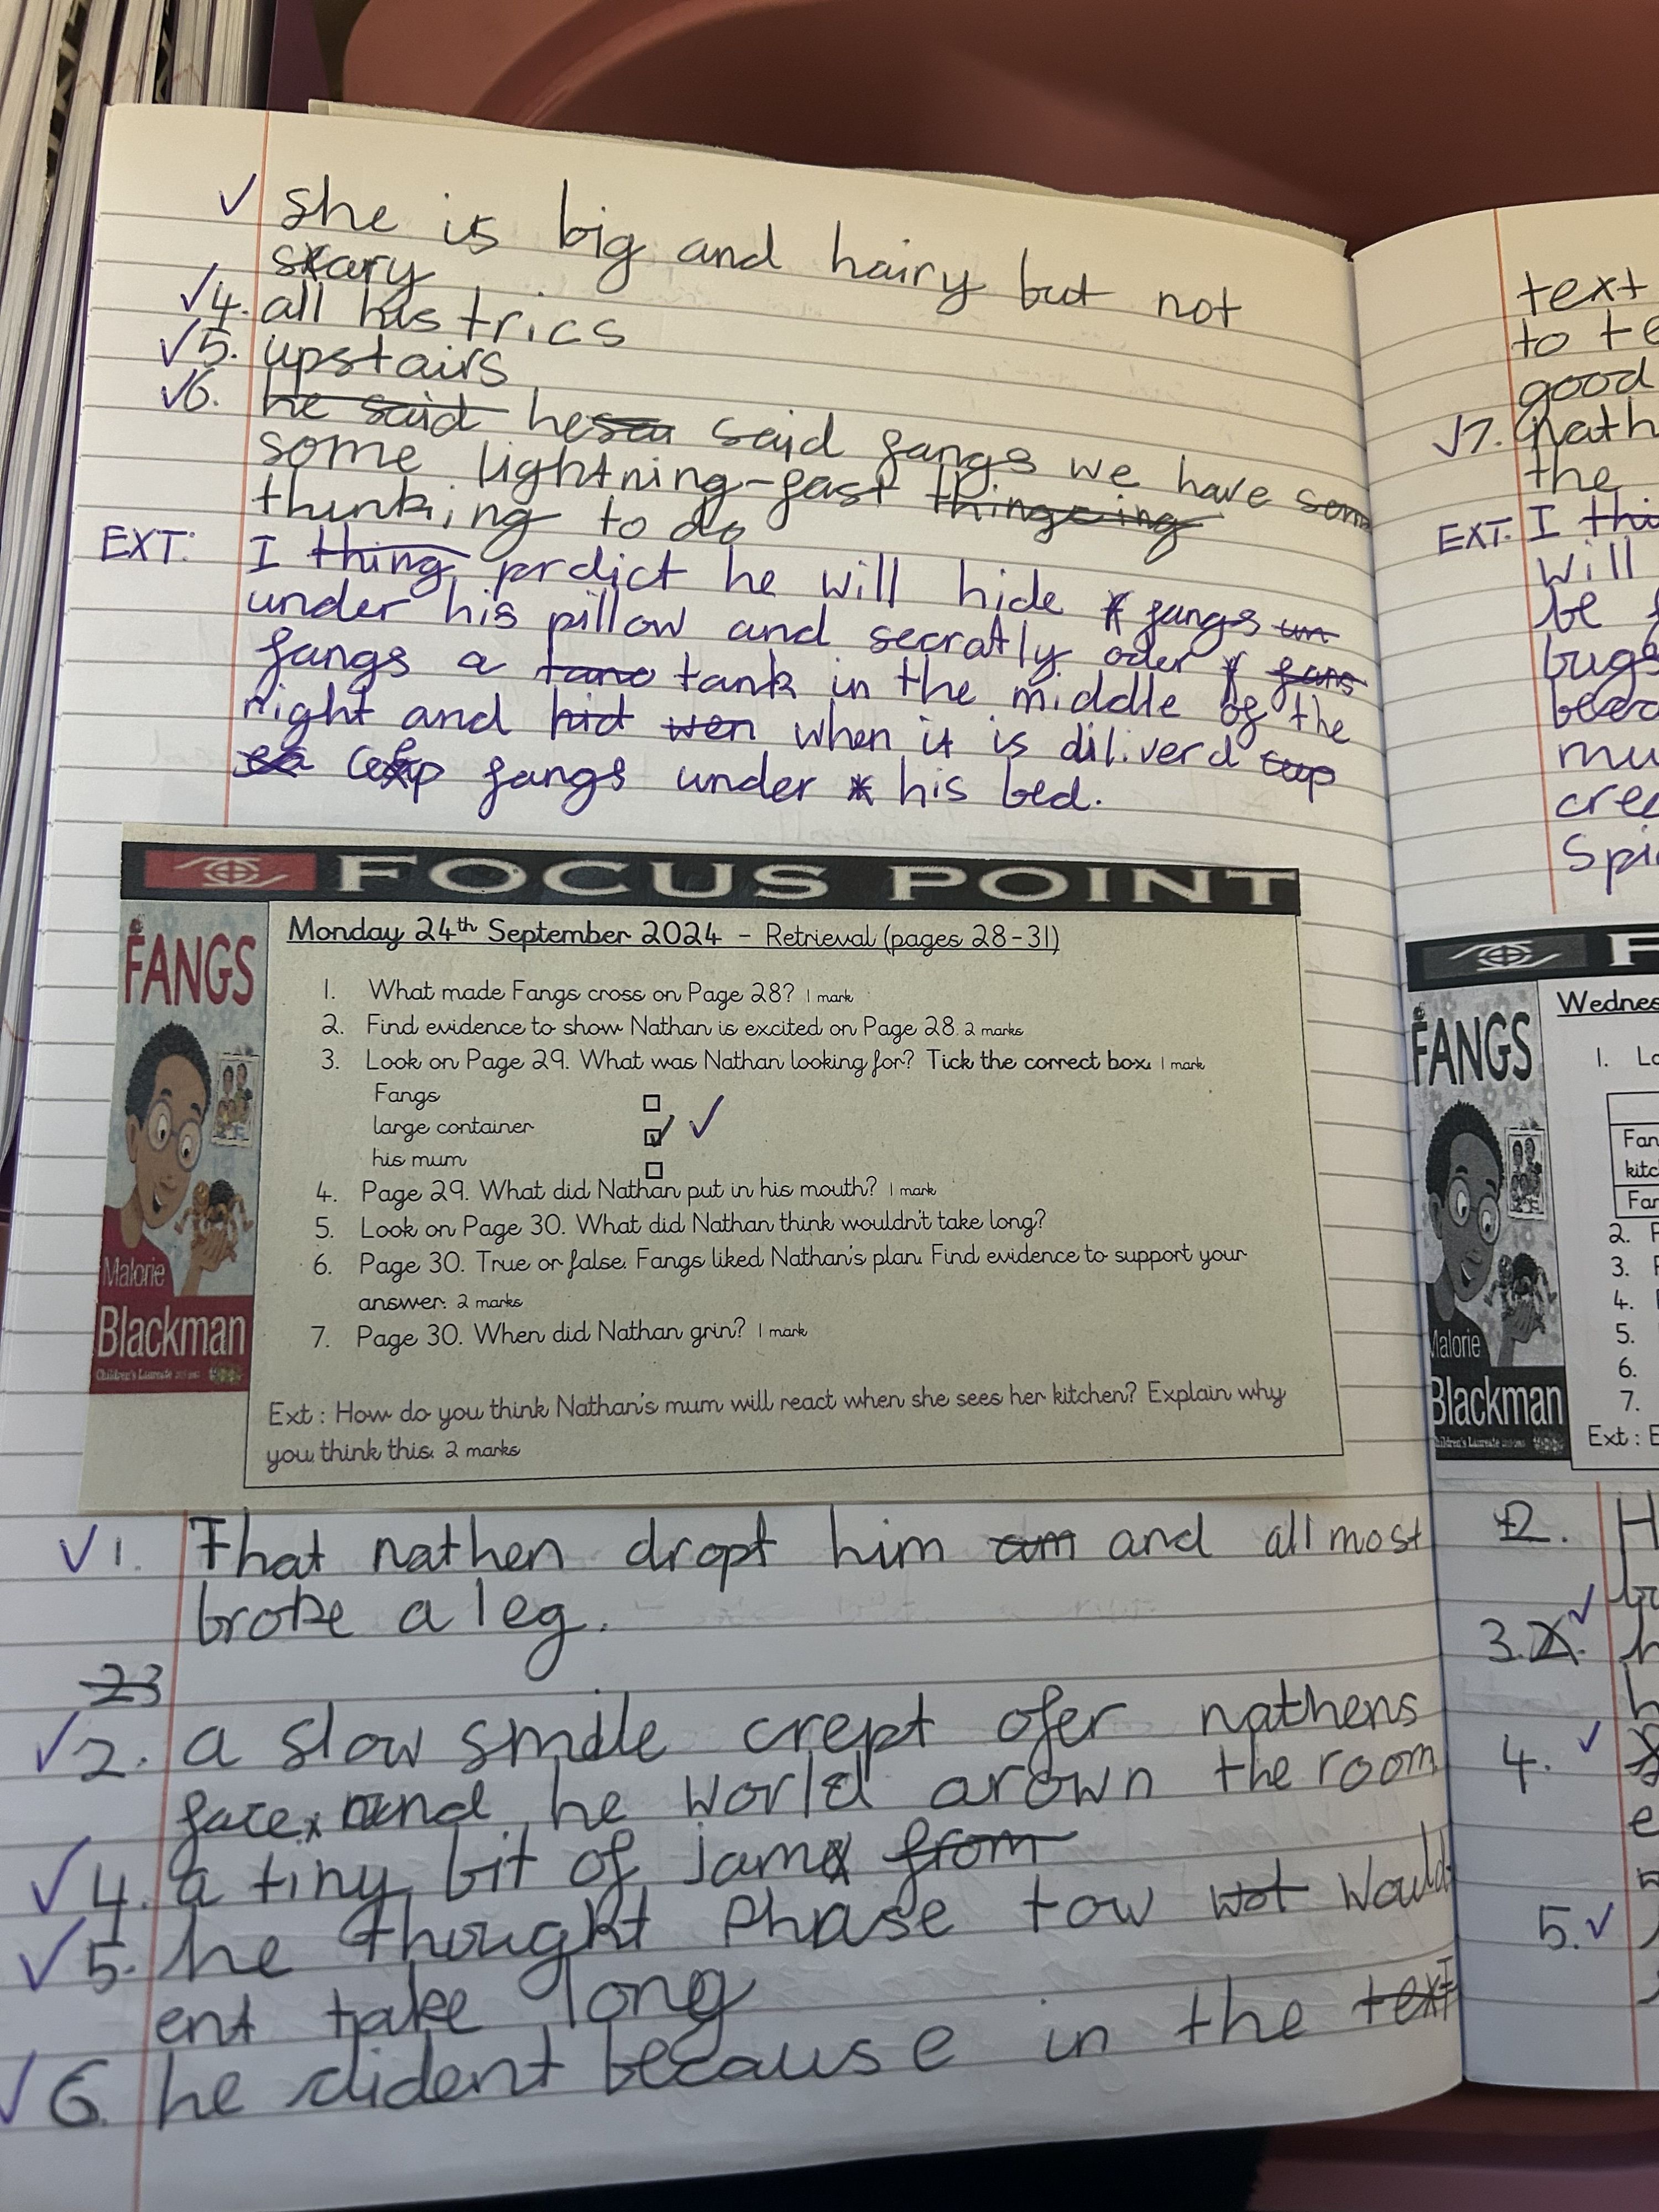 ✓ she is big and hairy but not
scary
✓4. all his trics
✓5. upstairs
✓6. he said he said fangs we have som
some lightning-fast
thinking to do
EXT: I thing prdict he will hide fangs un
under his pillow and secratly oder fans
fangs a tank in the middle of the
night and hid wen when it is diliverd cup
ceap fangs under his bed.
FOCUS POINT
FANGS
Malorie
Blackman
Children's Laureate
Monday 24th September 2024 - Retrieval (pages 28-31)
1. What made Fangs cross on Page 28? 1 mark
2. Find evidence to show Nathan is excited on Page 28. 2 marks
3. Look on Page 29. What was Nathan looking for? Tick the correct box. 1 mark
Fangs ☐
large container ☑ ✓
his mum ☐
4. Page 29. What did Nathan put in his mouth? 1 mark
5. Look on Page 30. What did Nathan think wouldn't take long?
6. Page 30. True or false. Fangs liked Nathan's plan. Find evidence to support your
answer. 2 marks
7. Page 30. When did Nathan grin? 1 mark
Ext : How do you think Nathan's mum will react when she sees her kitchen? Explain why
you think this. 2 marks
✓1. That nathen dropt him and allmost
broke a leg.
23
✓2. a slow smile crept ofer nathens
face and he world arown the room
✓4. a tiny bit of jam from
✓5. he thought Phase tow wot would
ent take long
✓6. he dident because in the text
text
to te
good
✓7. nath
the
EXT. I thi
will
be
bugs
beac
mu
cree
Spi
F
FANGS
Malorie
Blackman
Children's Laureate
Wednes
1. Lo
Fan
kitc
Fan
2.
3.
4.
5.
6.
7.
Ext : E
2. H
3. ✓ h
4. ✓
5. ✓